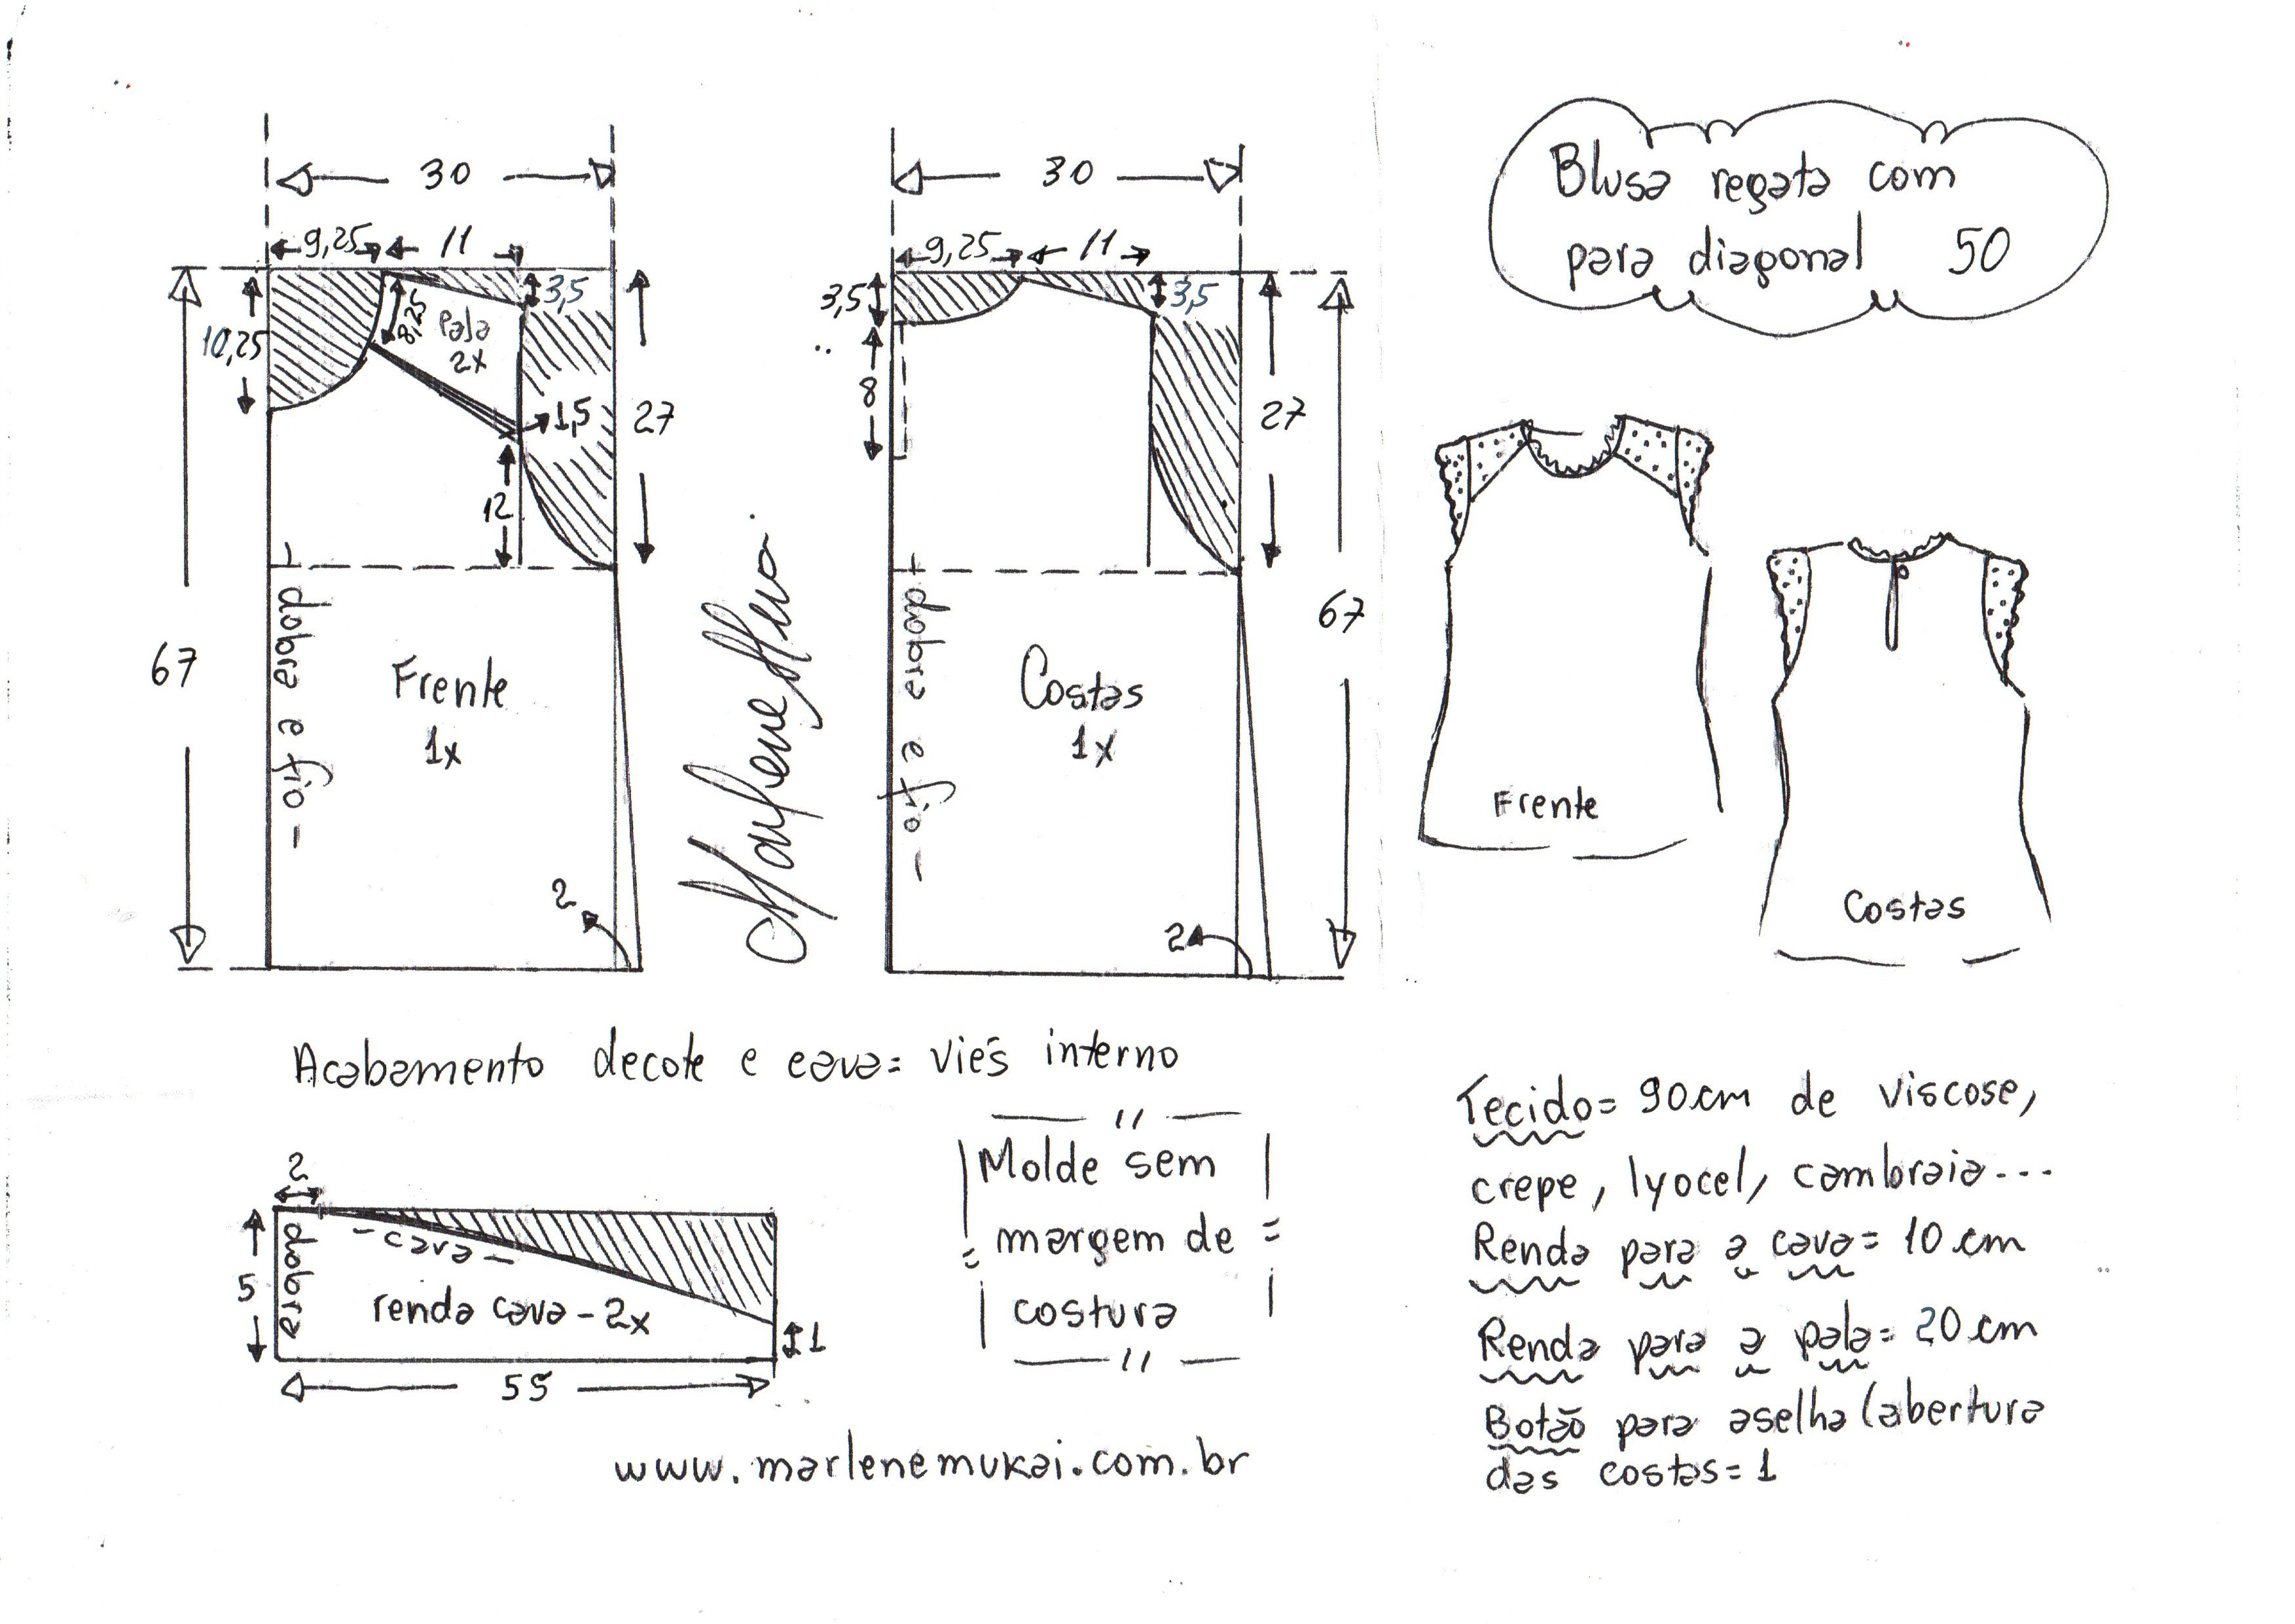 Blusa regata com
para diagonal 50
30
9,25 11
3,5
10,25
8,25
Pala
2x
1,5
27
12
67
- dobra e fio -
Frente
1x
2
30
9,25 11
3,5
3,5
8
27
67
- dobra e fio -
Costas
1x
2
Frente
Costas
Acabamento decote e cava= viés interno
2
dobra
5
- cava -
renda cava - 2x
1
55
Molde sem
margem de
costura
www.marlenemukai.com.br
Tecido= 90cm de viscose,
crepe, lyocel, cambraia...
Renda para a cava= 10 cm
Renda para a pala= 20 cm
Botão para aselha (abertura
das costas=1